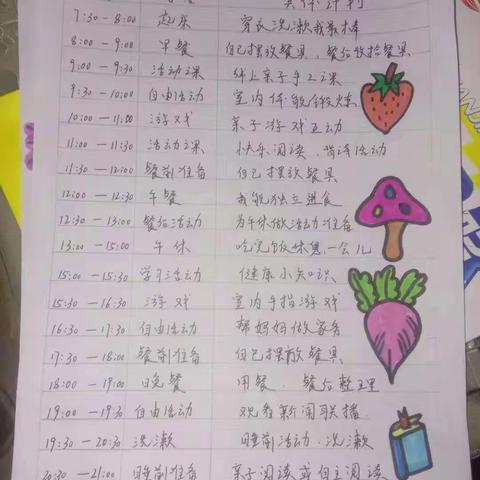 具体计划
7:30—8:00 起床 穿衣洗漱我最棒
8:00—9:00 早餐 自己摆放餐具,餐后收拾餐具
9:00—9:30 活动课 线上亲子手工课
9:30—10:00 自由活动 室内体能锻炼
10:00—11:00 游戏 亲子游戏互动
11:00—11:30 活动课 快乐阅读,背诗活动
11:30—12:00 餐前准备 自己摆放餐具
12:00—12:30 午餐 我能独立进食
12:30—13:00 餐后活动 为午休做活动准备
13:00—15:00 午休 吃完饭休息一会儿
15:00—15:30 学习活动 健康小知识
15:30—16:30 游戏 室内手指游戏
16:30—17:30 自由活动 帮妈妈做家务
17:30—18:00 餐前准备 自己摆放餐具
18:00—19:00 晚餐 用餐、餐后整理
19:00—19:30 自由活动 观看新闻联播
19:30—20:30 洗漱 睡前活动、洗漱
20:30—21:00 睡前准备 亲子阅读或自主阅读